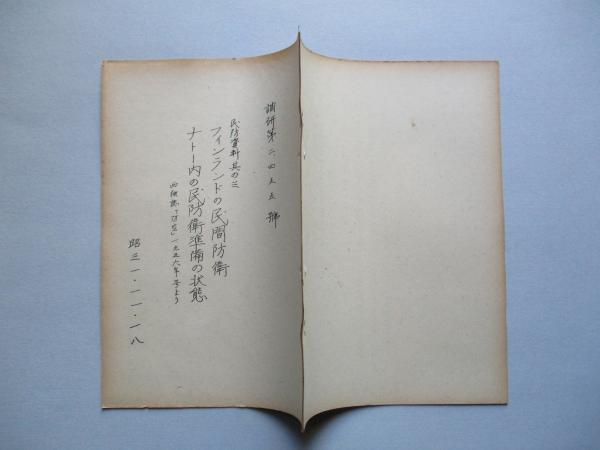 調研第二、四五五號
民防資料其の三
フィンランドの民間防衛
ナトー内の民防衛準備の状態
一九五六年 より
昭三一・一一・一八